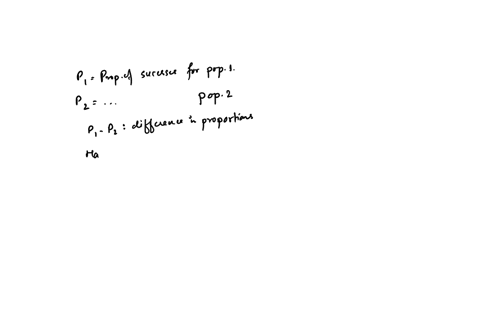 P₁ = Prop. of successes for pop. 1.
P₂ = ... pop. 2
P₁ - P₂ : difference in proportions
Ha